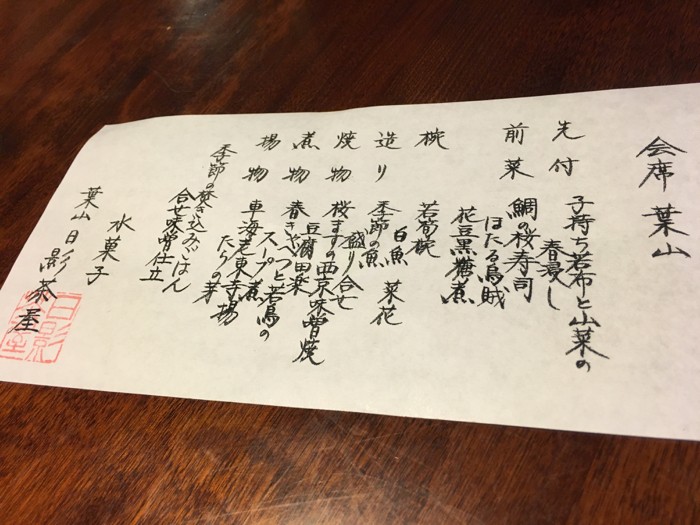 会席 葉山
先付 子持ち若布と山菜の
春浸し
前菜 鯛の桜寿司
ほたる烏賊
花豆黒糖煮
椀 若筍椀
白魚 菜花
造り 季節の魚
盛り合せ
焼物 桜ますの西京味噌焼
豆腐田楽
煮物 春きゃべつと若鳥の
スープ煮
揚物 車海老東寺揚
たらの芽
季節の焚き込みごはん
合せ味噌仕立
水菓子
葉山 日影茶屋
日影茶屋